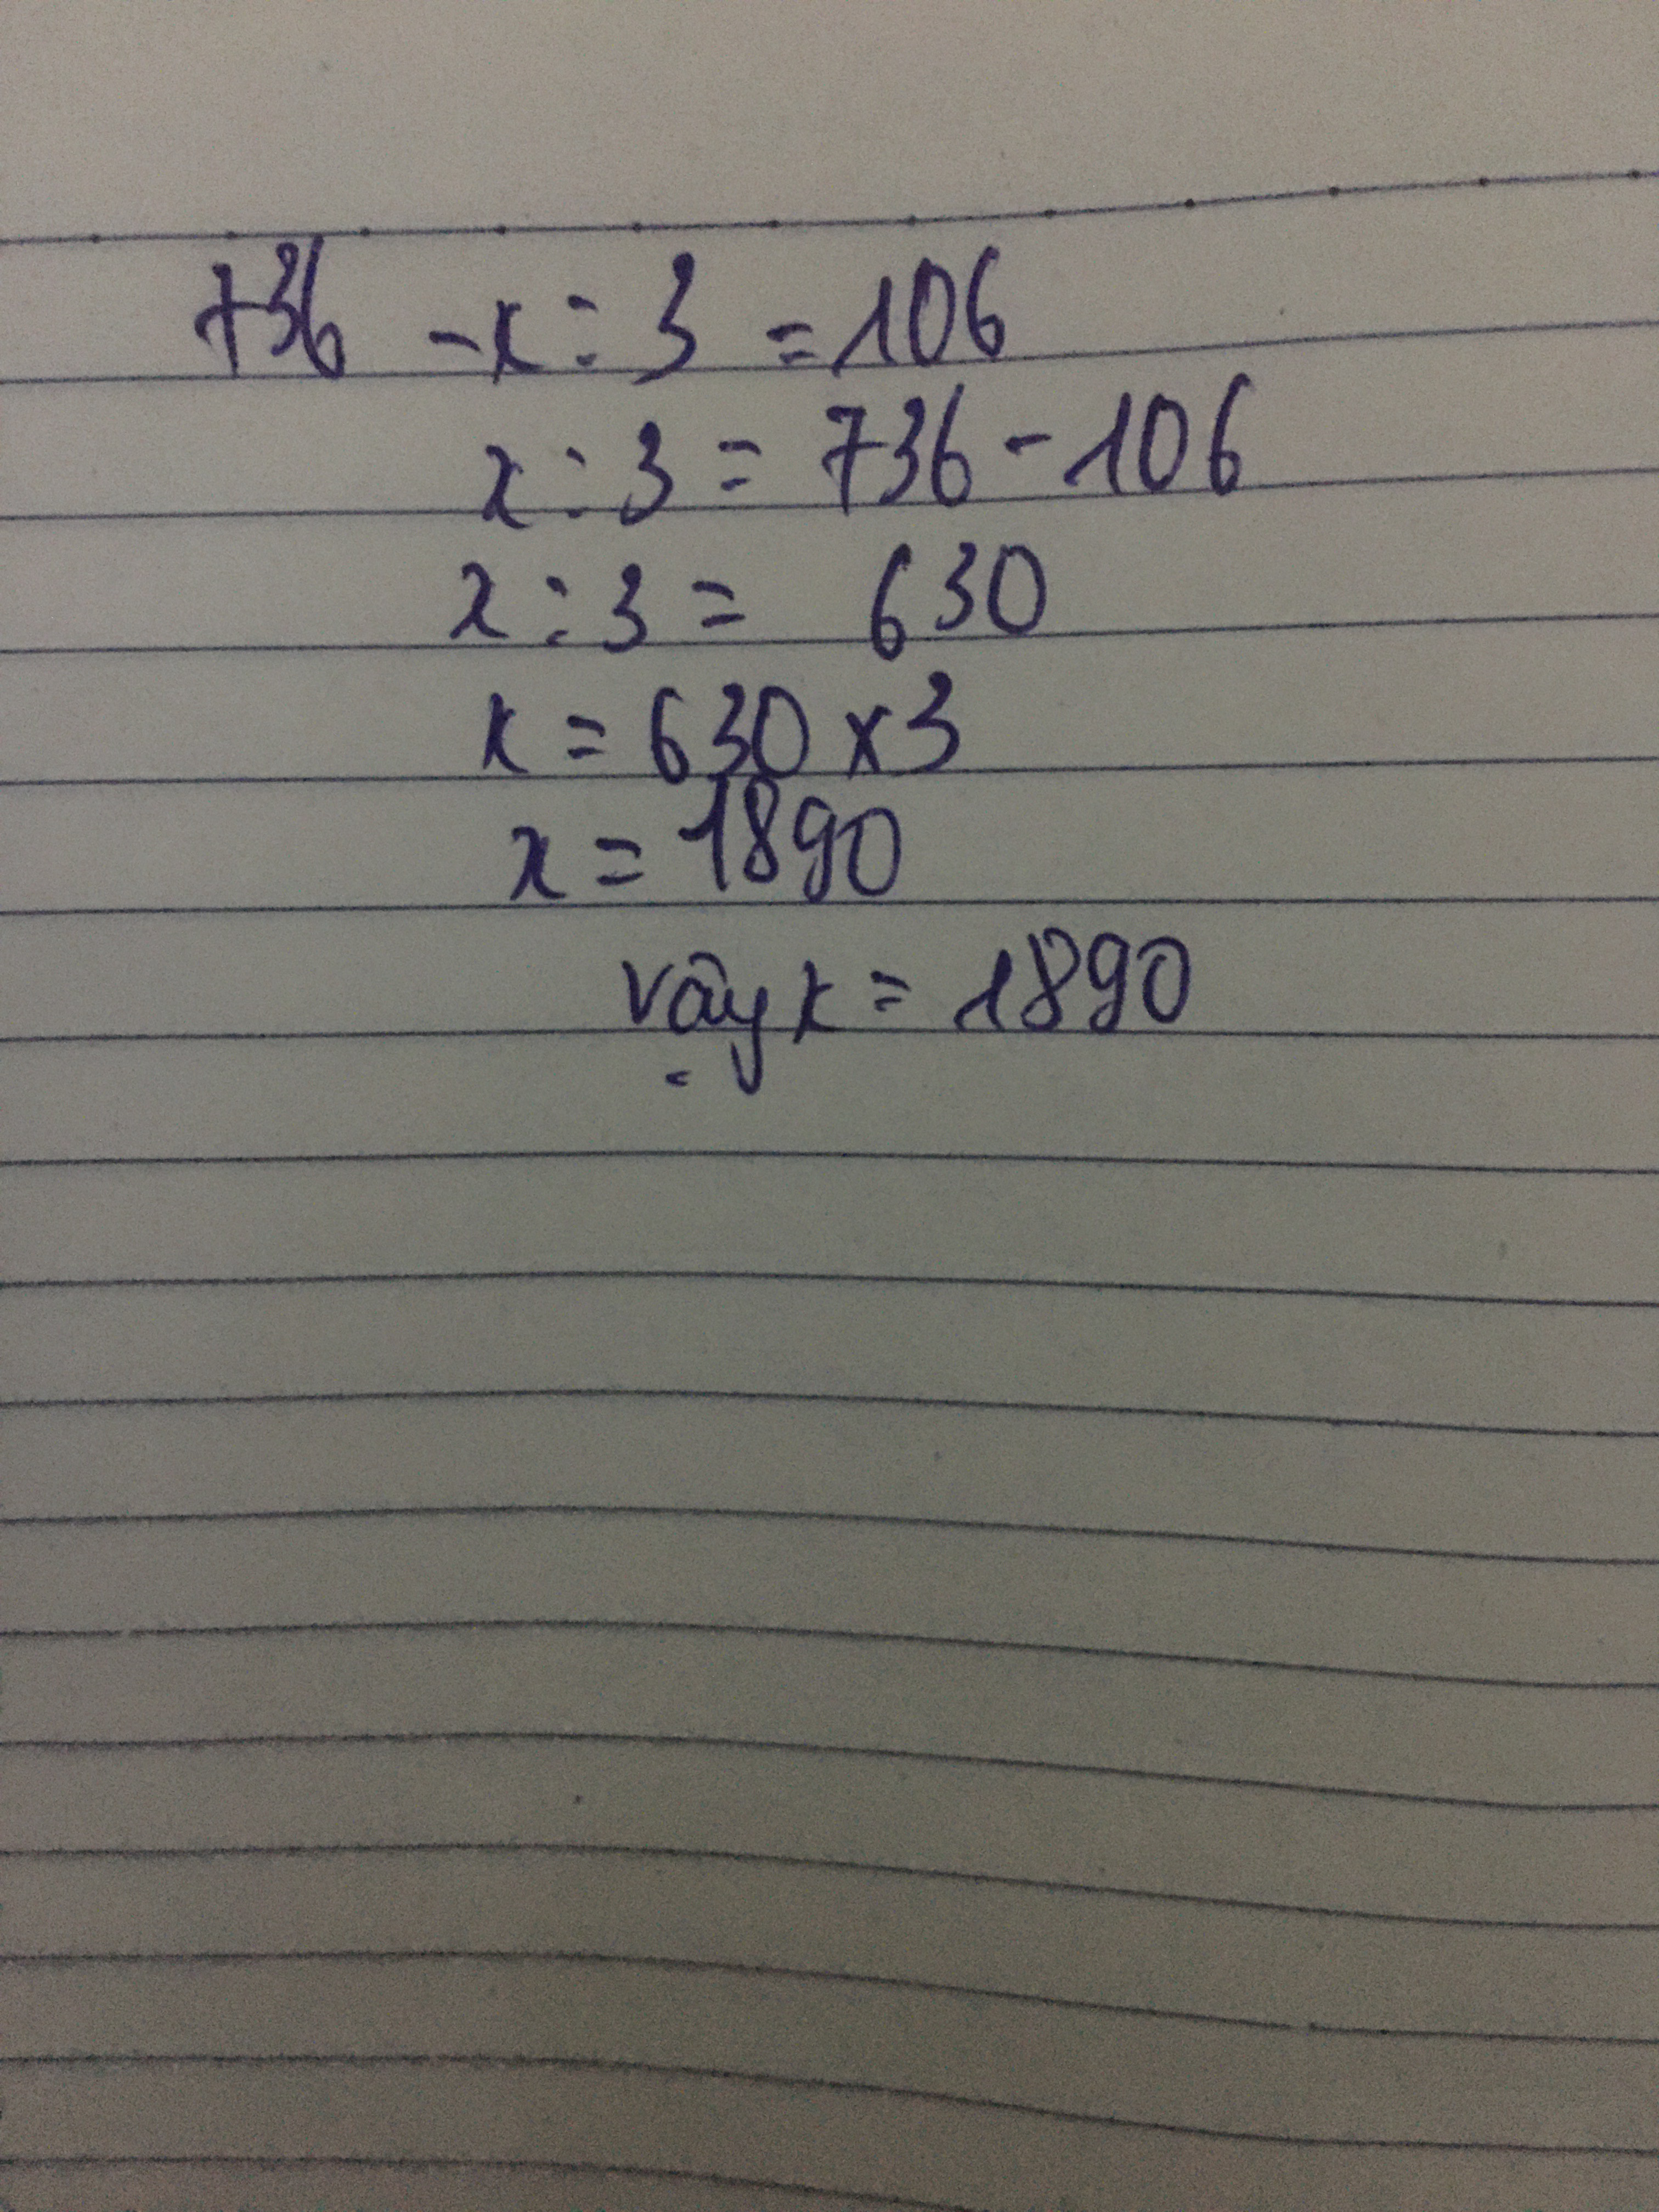 736 - x : 3 = 106
x : 3 = 736 - 106
x : 3 = 630
x = 630 x 3
x = 1890
vậy x = 1890